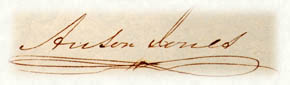 Anson Jones